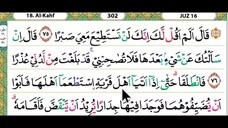 18. Al-Kahf 302 JUZ 16
قَالَ أَلَمْ أَقُلْ لَكَ إِنَّكَ لَنْ تَسْتَطِيعَ مَعِيَ صَبْرًا ٧٥ قَالَ إِنْ
سَأَلْتُكَ عَنْ شَيْءٍ بَعْدَهَا فَلَا تُصَاحِبْنِي قَدْ بَلَغْتَ مِنْ لَدُنِّي عُذْرًا ٧٦
فَانْطَلَقَا حَتَّى إِذَا أَتَيَا أَهْلَ قَرْيَةٍ اسْتَطْعَمَا أَهْلَهَا فَأَبَوْا
أَنْ يُضَيِّفُوهُمَا فَوَجَدَا فِيهَا جِدَارًا يُرِيدُ أَنْ يَنْقَضَّ فَأَقَامَهُ